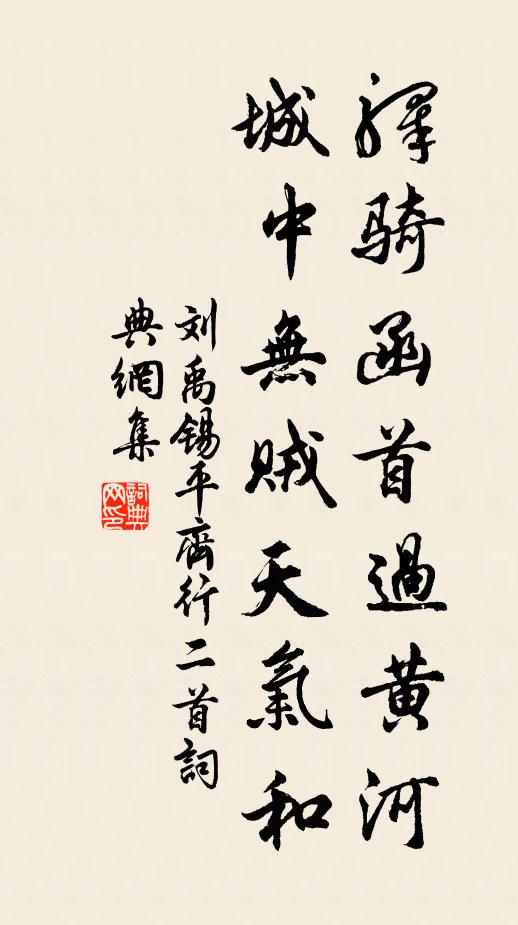 驛騎函首過黃河
城中無賊天氣和
刘禹錫平齊行二首詞
典網集
詞典
网印